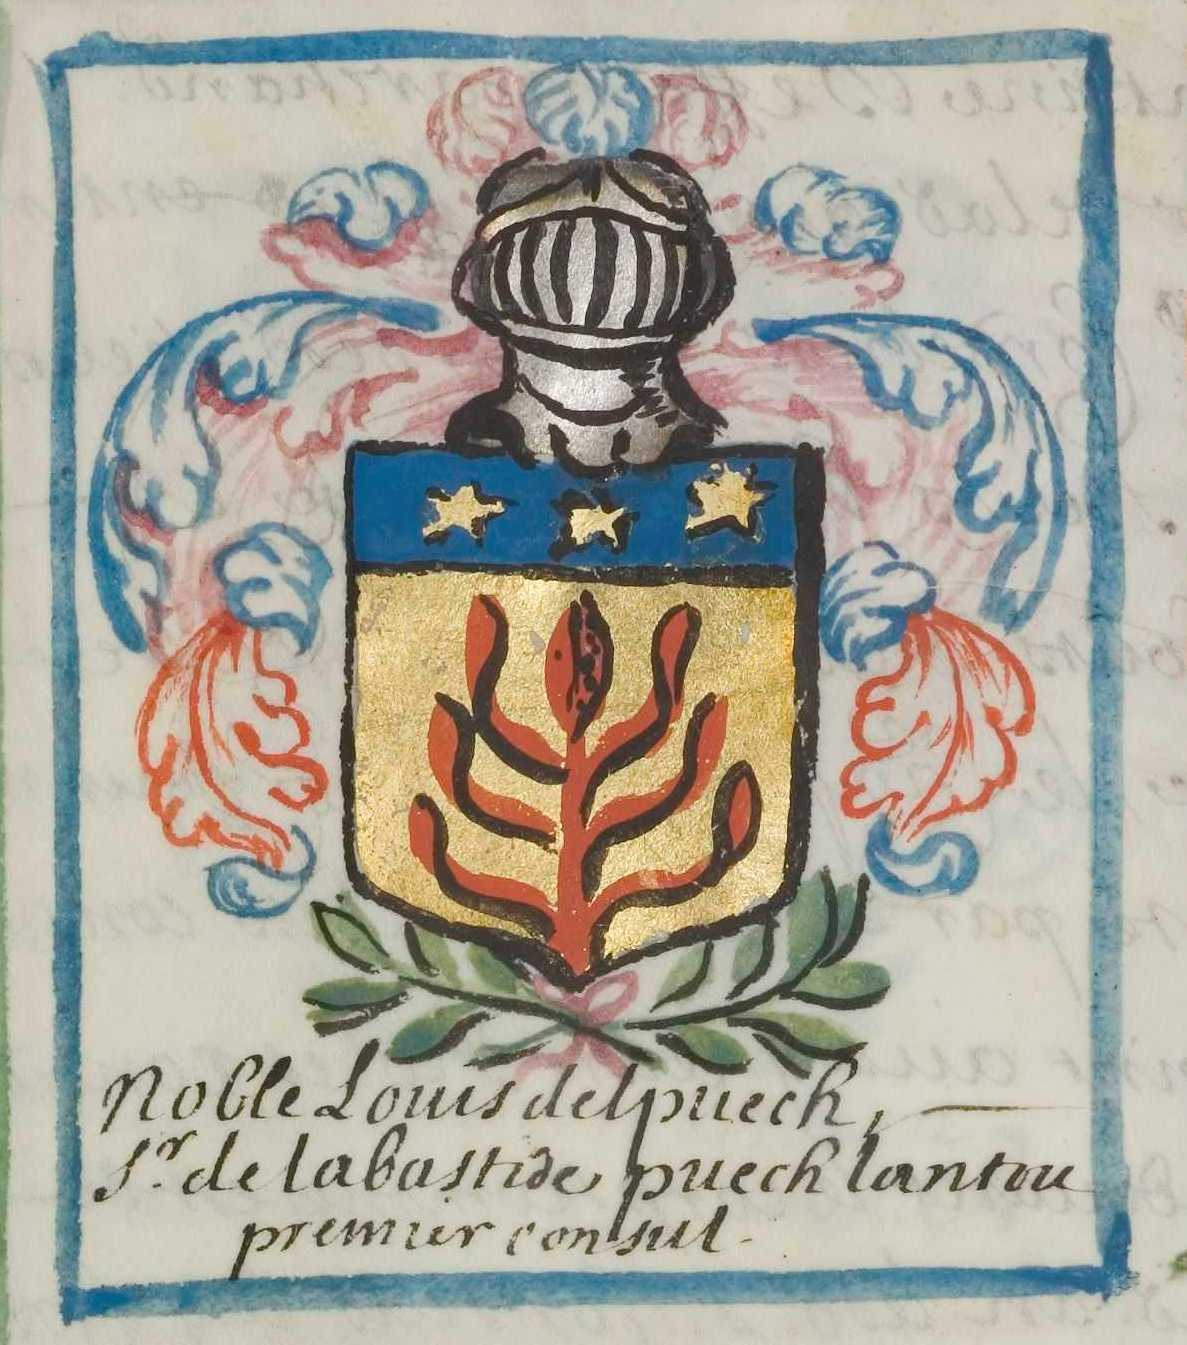 Noble Louis delpuech,
Sr. de labastide puech lantou
premier consul.